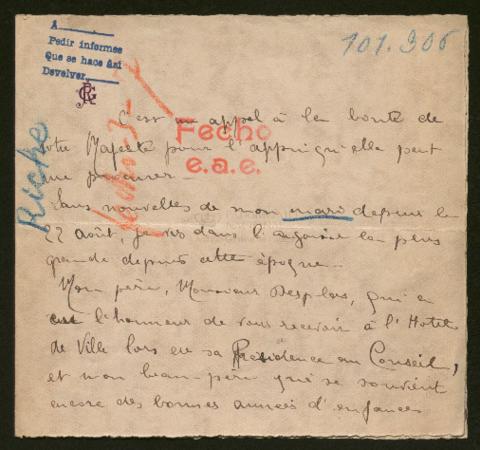 A
Pedir informes
Que se hace así
Devolver
101.306
Riche
Fecho
e.a.e.
C'est un appel à la bonté de
Votre Majesté pour l'appui qu'elle peut
me procurer —
Sans nouvelles de mon mari depuis le
22 août, je vis dans l'angoisse la plus
grande depuis cette époque —
Mon père, Monsieur Desplas, qui a
eu l'honneur de vous recevoir à l'Hotel
de Ville lors de sa Présidence au Conseil,
et mon beau-père qui se souvient
encore des bonnes années d'enfances